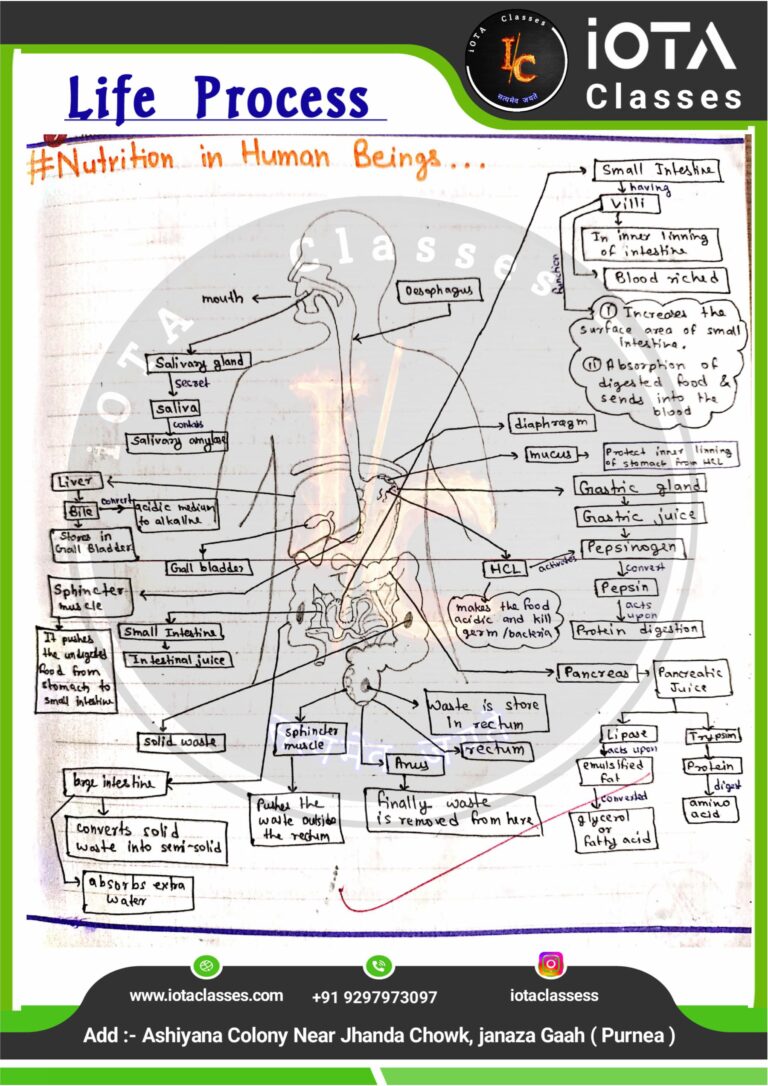 iOTA Classes
I/C
सत्यमेव जयते
iOTA
Classes
Life Process
#Nutrition in Human Beings...
iOTA Classes
mouth
Oesophagus
Salivary gland
secret
saliva
contais
Salivary amylase
Small Intestine
having
Villi
In inner linning
of intestine
Blood riched
function
I Increases the
surface area of small
Intestine.
II Absorption of
digested food &
sends into the
blood
diaphragm
mucus
Protect inner linning
of stomach from HCL
Gastric gland
Gastric juice
Pepsinogen
convert
Pepsin
acts
upon
Protein digestion
HCL
activates
makes the food
acidic and kill
germ/bacteria
Liver
Bile
convert
acidic medium
to alkaline
Stores in
Gall Bladder
Gall bladder
Sphincter
muscle
It pushes
the undigested
food from
stomach to
small intestine
Small Intestine
Intestinal juice
solid waste
large intestine
converts solid
waste into semi-solid
absorbs extra
water
sphincter
muscle
Pushes the
waste outside
the rectum
Anus
Finally waste
is removed from here
Waste is store
In rectum
rectum
Pancreas
Pancreatic
Juice
Lipase
acts upon
emulsified
fat
converted
glycerol
or
fatty acid
Trypsin
Protein
digest
amino
acid
www.iotaclasses.com
+91 9297973097
iotaclassess
Add :- Ashiyana Colony Near Jhanda Chowk, janaza Gaah ( Purnea )